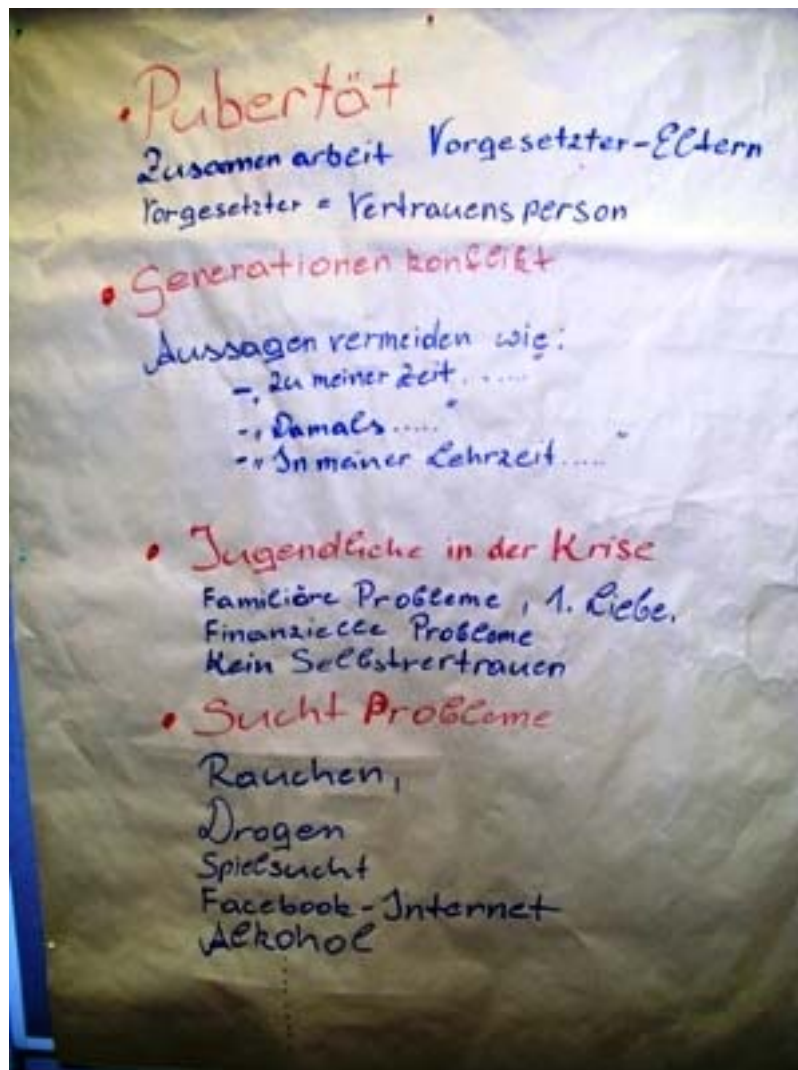 • Pubertät
Zusamen arbeit Vorgesetzter-Eltern
Vorgesetzter = Vertrauensperson
• Generationen konflikt
Aussagen vermeiden wie:
- „Zu meiner Zeit......"
- „Damals....."
- „In meiner Lehrzeit....."
• Jugendliche in der Krise
Familiäre Probleme, 1. Liebe,
Finanzielle Probleme
Kein Selbstvertrauen
• Sucht Probleme
Rauchen,
Drogen
Spielsucht
Facebook-Internet
Alkohol